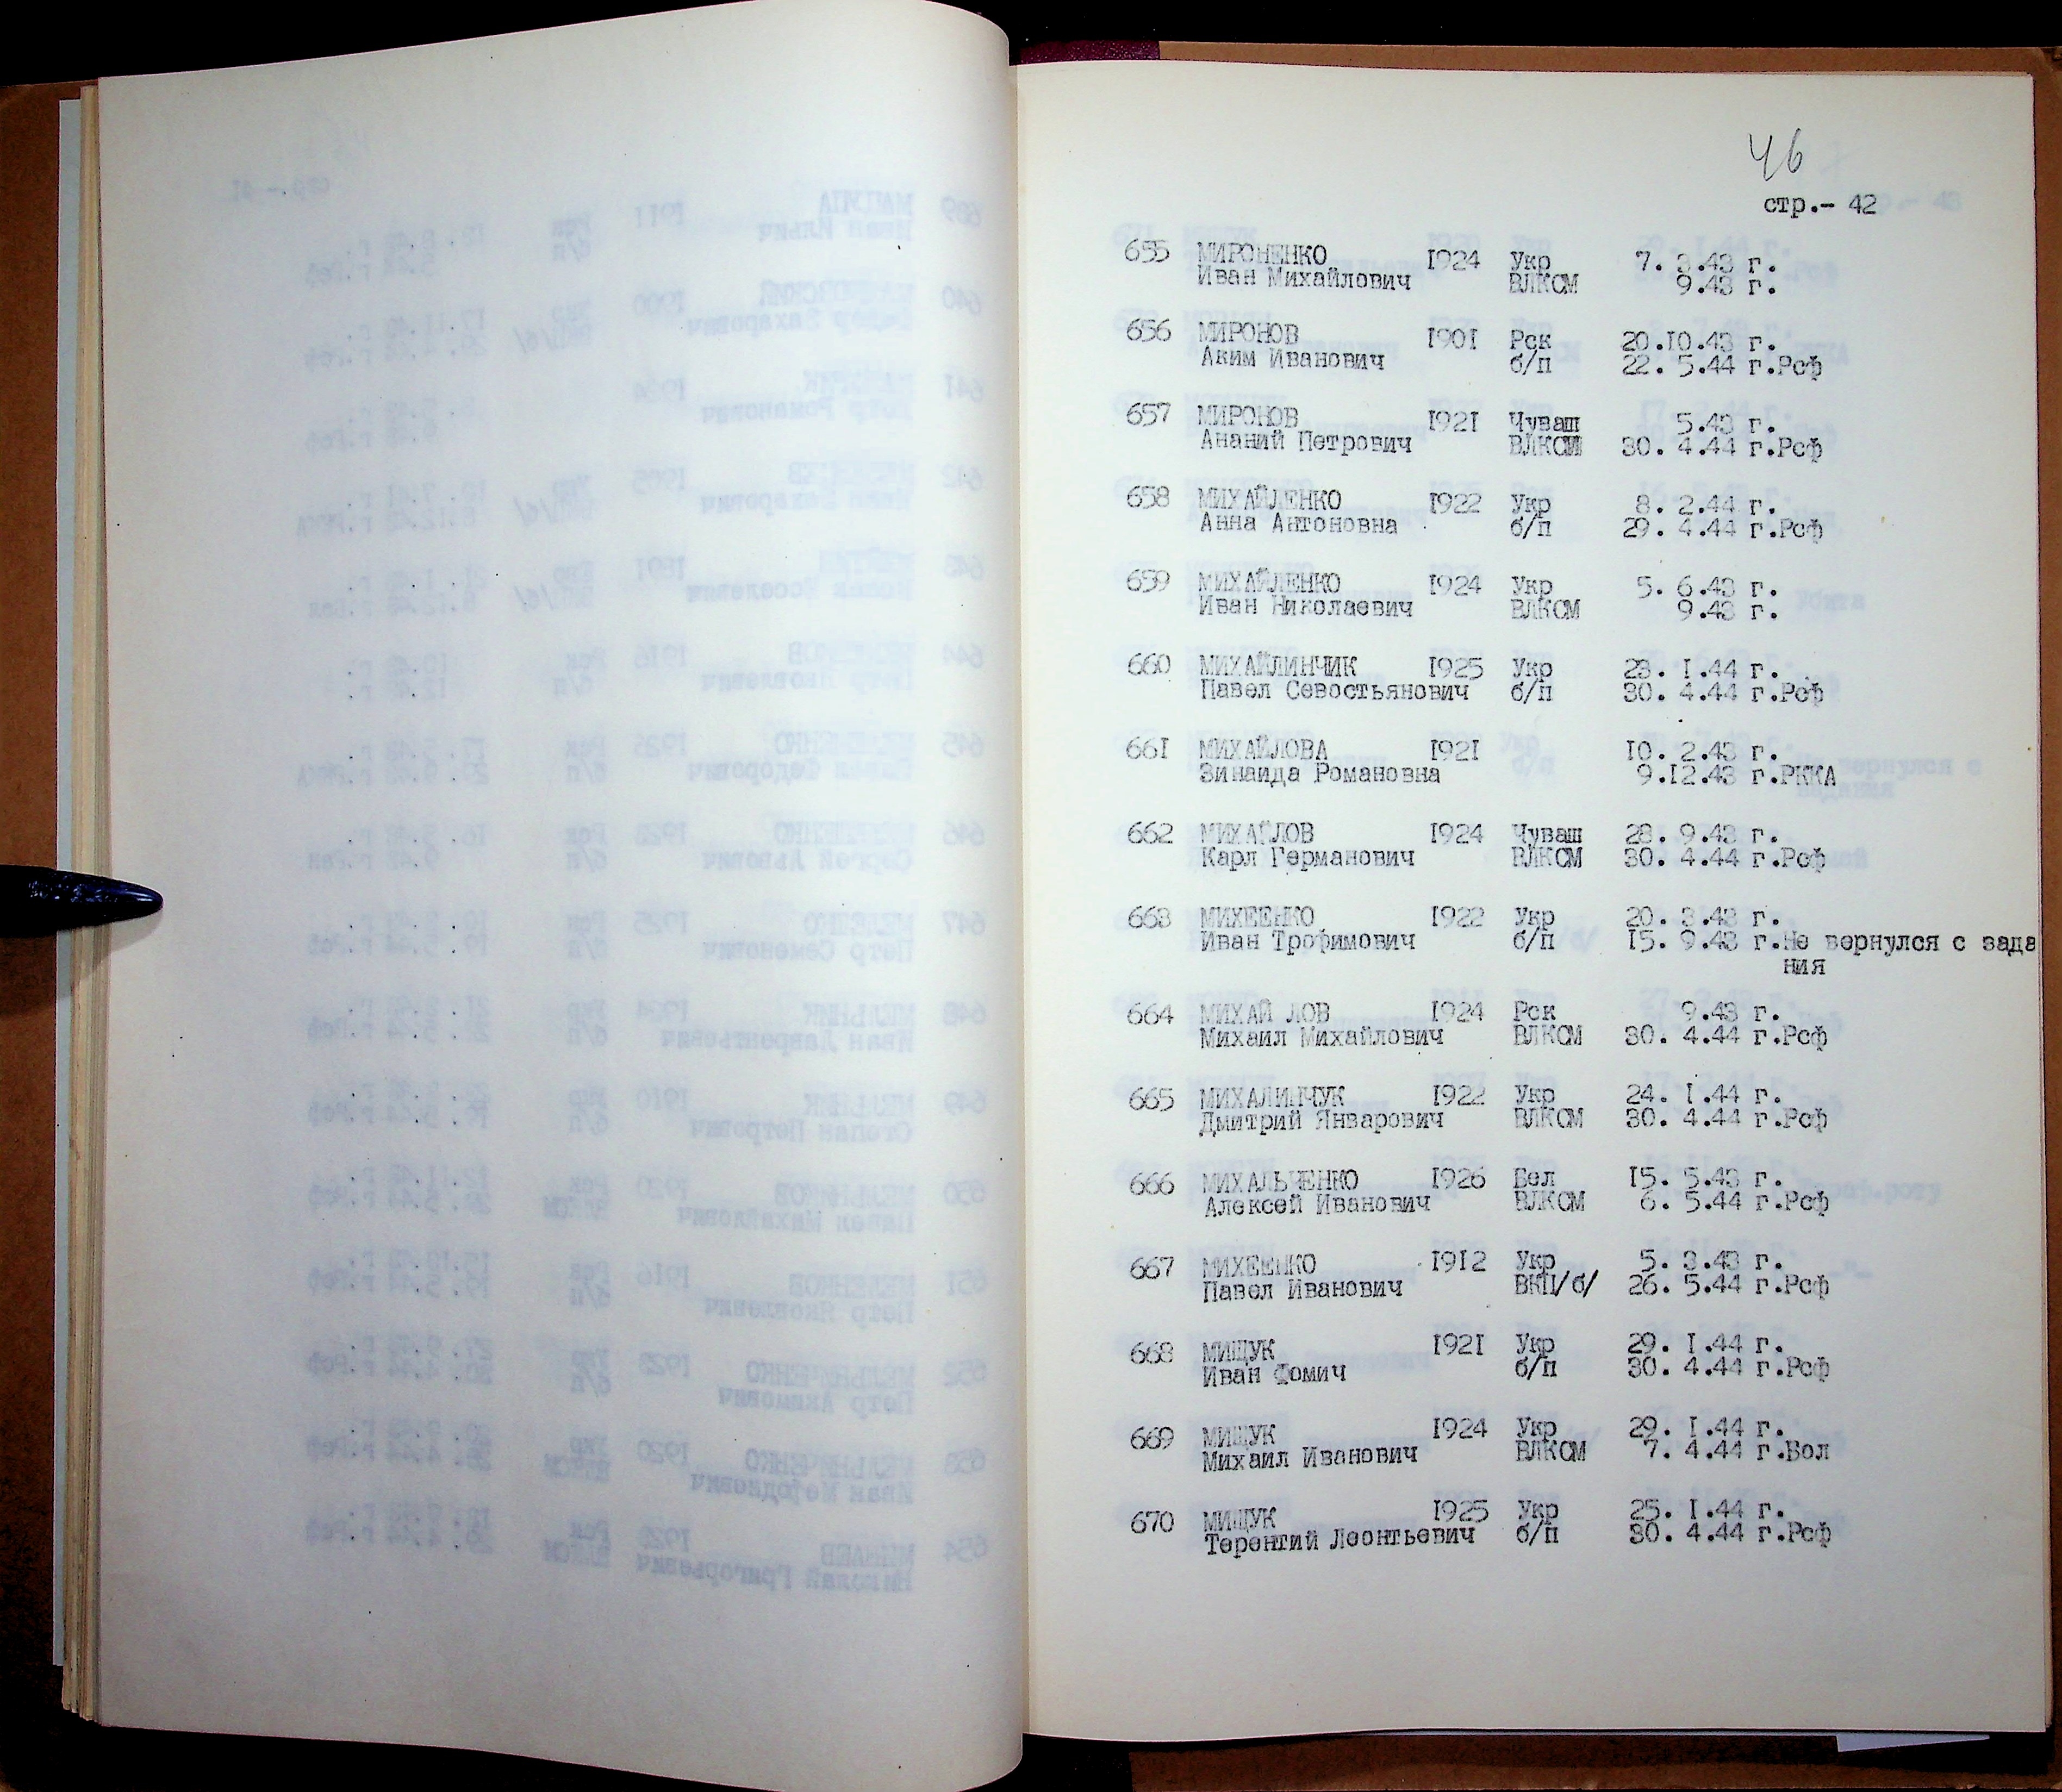 46
стр.- 42
655 МИРОНЕНКО 1924 Укр 7. 3.43 г.
Иван Михайлович ВЛКСМ 9.43 г.
656 МИРОНОВ 1901 Рск 20.10.43 г.
Аким Иванович б/п 22. 5.44 г.Рсф
657 МИРОНОВ 1921 Чуваш 5.43 г.
Ананий Петрович ВЛКСМ 30. 4.44 г.Рсф
658 МИХАЙЛЕНКО 1922 Укр 8. 2.44 г.
Анна Антоновна б/п 29. 4.44 г.Рсф
659 МИХАЙЛЕНКО 1924 Укр 5. 6.43 г.
Иван Николаевич ВЛКСМ 9.43 г.
660 МИХАЙЛИНЧИК 1925 Укр 23. 1.44 г.
Павел Севостьянович б/п 30. 4.44 г.Рсф
661 МИХАЙЛОВА 1921 10. 2.43 г.
Зинаида Романовна 9.12.43 г.РККА
662 МИХАЙЛОВ 1924 Чуваш 28. 9.43 г.
Карл Германович ВЛКСМ 30. 4.44 г.Рсф
663 МИХЕЕНКО 1922 Укр 20. 3.43 г.
Иван Трофимович б/п 15. 9.43 г.Не вернулся с зада
ния
664 МИХАЙ ЛОВ 1924 Рск 9.43 г.
Михаил Михайлович ВЛКСМ 30. 4.44 г.Рсф
665 МИХАЛИНЧУК 1922 Укр 24. 1.44 г.
Дмитрий Январович ВЛКСМ 30. 4.44 г.Рсф
666 МИХАЛЬЧЕНКО 1926 Бел 15. 5.43 г.
Алексей Иванович ВЛКСМ 6. 5.44 г.Рсф
667 МИХЕЕНКО 1912 Укр 5. 3.43 г.
Павел Иванович ВКП/б/ 26. 5.44 г.Рсф
668 МИЩУК 1921 Укр 29. 1.44 г.
Иван Фомич б/п 30. 4.44 г.Рсф
669 МИЩУК 1924 Укр 29. 1.44 г.
Михаил Иванович ВЛКСМ 7. 4.44 г.Бол
670 МИЩУК 1925 Укр 25. 1.44 г.
Терентий Леонтьевич б/п 30. 4.44 г.Рсф